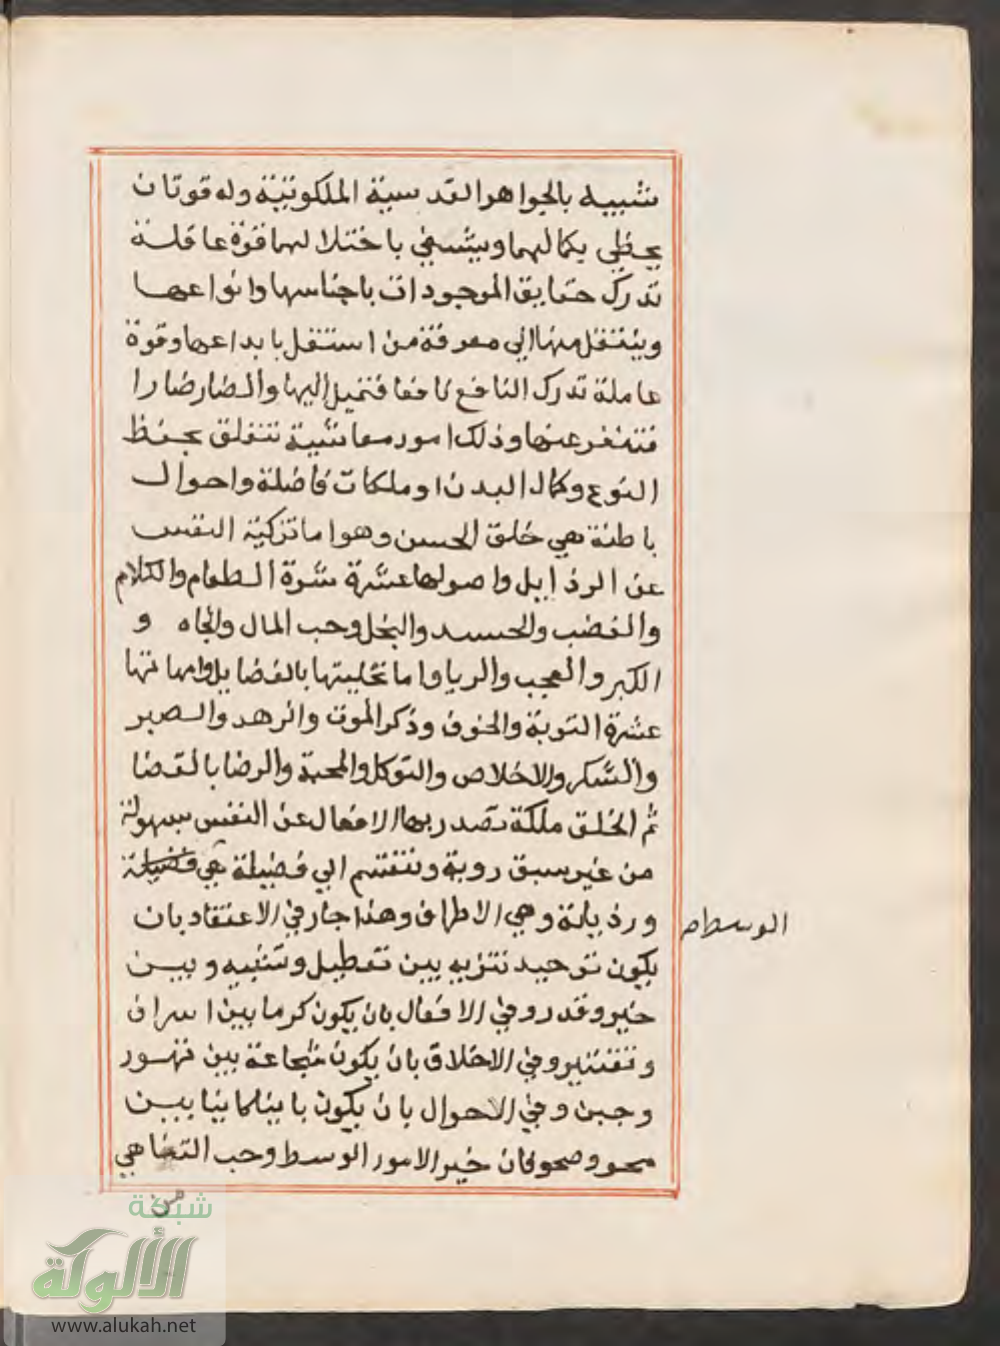 شبيه بالجواهر القدسية الملكوتية وله قوتان
يحظي بكمالهما ويشقي باختلالهما قوة عاقلة
تدرك حقايق الموجودات باجناسها وانواعها
وينتقل منها الي معرفة من استقل بابداعها وقوة
عاملة تدرك النافع نافعا فتميل اليها والضار ضارا
فتنفر عنها وذلك امور معاشية تتعلق بحفظ
النوع وكمال البدن او ملكات فاضلة واحوال
باطنة هي خلق الحسن وهو اما تزكية النفس
عن الرذايل واصولها عشرة شرة الطعام والكلام
والغضب والحسد والبخل وحب المال والجاه و
الكبر والعجب والريا واما تحليتها بالفضايل وامهاتها
عشرة التوبة والخوف وذكر الموت والزهد والصبر
والشكر والاخلاص والتوكل والمحبة والرضا بالقضا
ثم الخلق ملكة تصدر بها الافعال عن النفس بسهولة
من غير سبق روية وتنقسم الي فضيلة هي
ورذيلة وهي الاطراف وهذا جار في الاعتقاد بان
الوسط صح
يكون توحيد تنزيه بين تعطيل وتشبيه وبين
جبر وقدر وفي الافعال بان يكون كرما بين اسراف
وتقتير وفي الاخلاق بان يكون شجاعة بين تهور
وجبن وفي الاحوال بان يكون بين
محو وصحو فان خير الامور الوسط وحب التناهي
من
شبكة
الألوكة
www.alukah.net